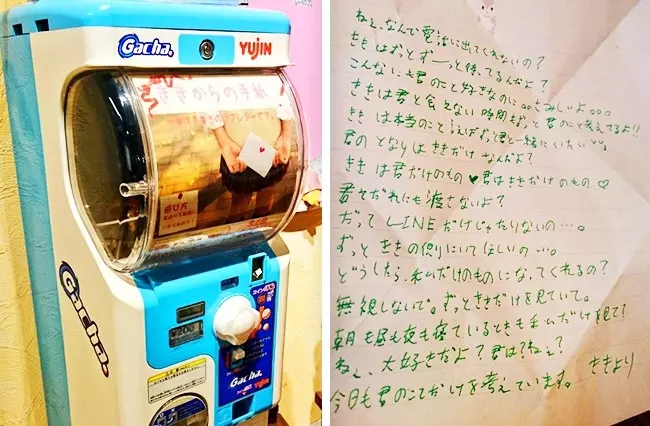 Gacha.
YUJIN
ききからの手紙
Gacha.
¥200
Gacha.
YUJIN
ねぇ、なんで電話に出てくれないの?
ききはずっとずーっと待ってるんだよ?
こんなにも君のこと好きなのに。。さみしいよ。。。
ききは君と会えない時間もずっと君のこと考えてるよ!!
ききは本当のこと言えばずっと君と一緒にいたい
君のとなりはききだけなんだよ?
ききは君だけのもの♥君はききだけのもの♡
君をだれにも渡さないよ?
だってLINEだけじゃたりないの…。
ずっとききの側にいてほしいの…。
どうしたら、私だけのものになってくれるの?
無視しないで。ずっとききだけを見ていて。
朝も昼も夜も寝ているときも私だけを見て?
ねぇ、大好きだよ?君は?ねぇ?
今日も君のことだけを考えています。ききより